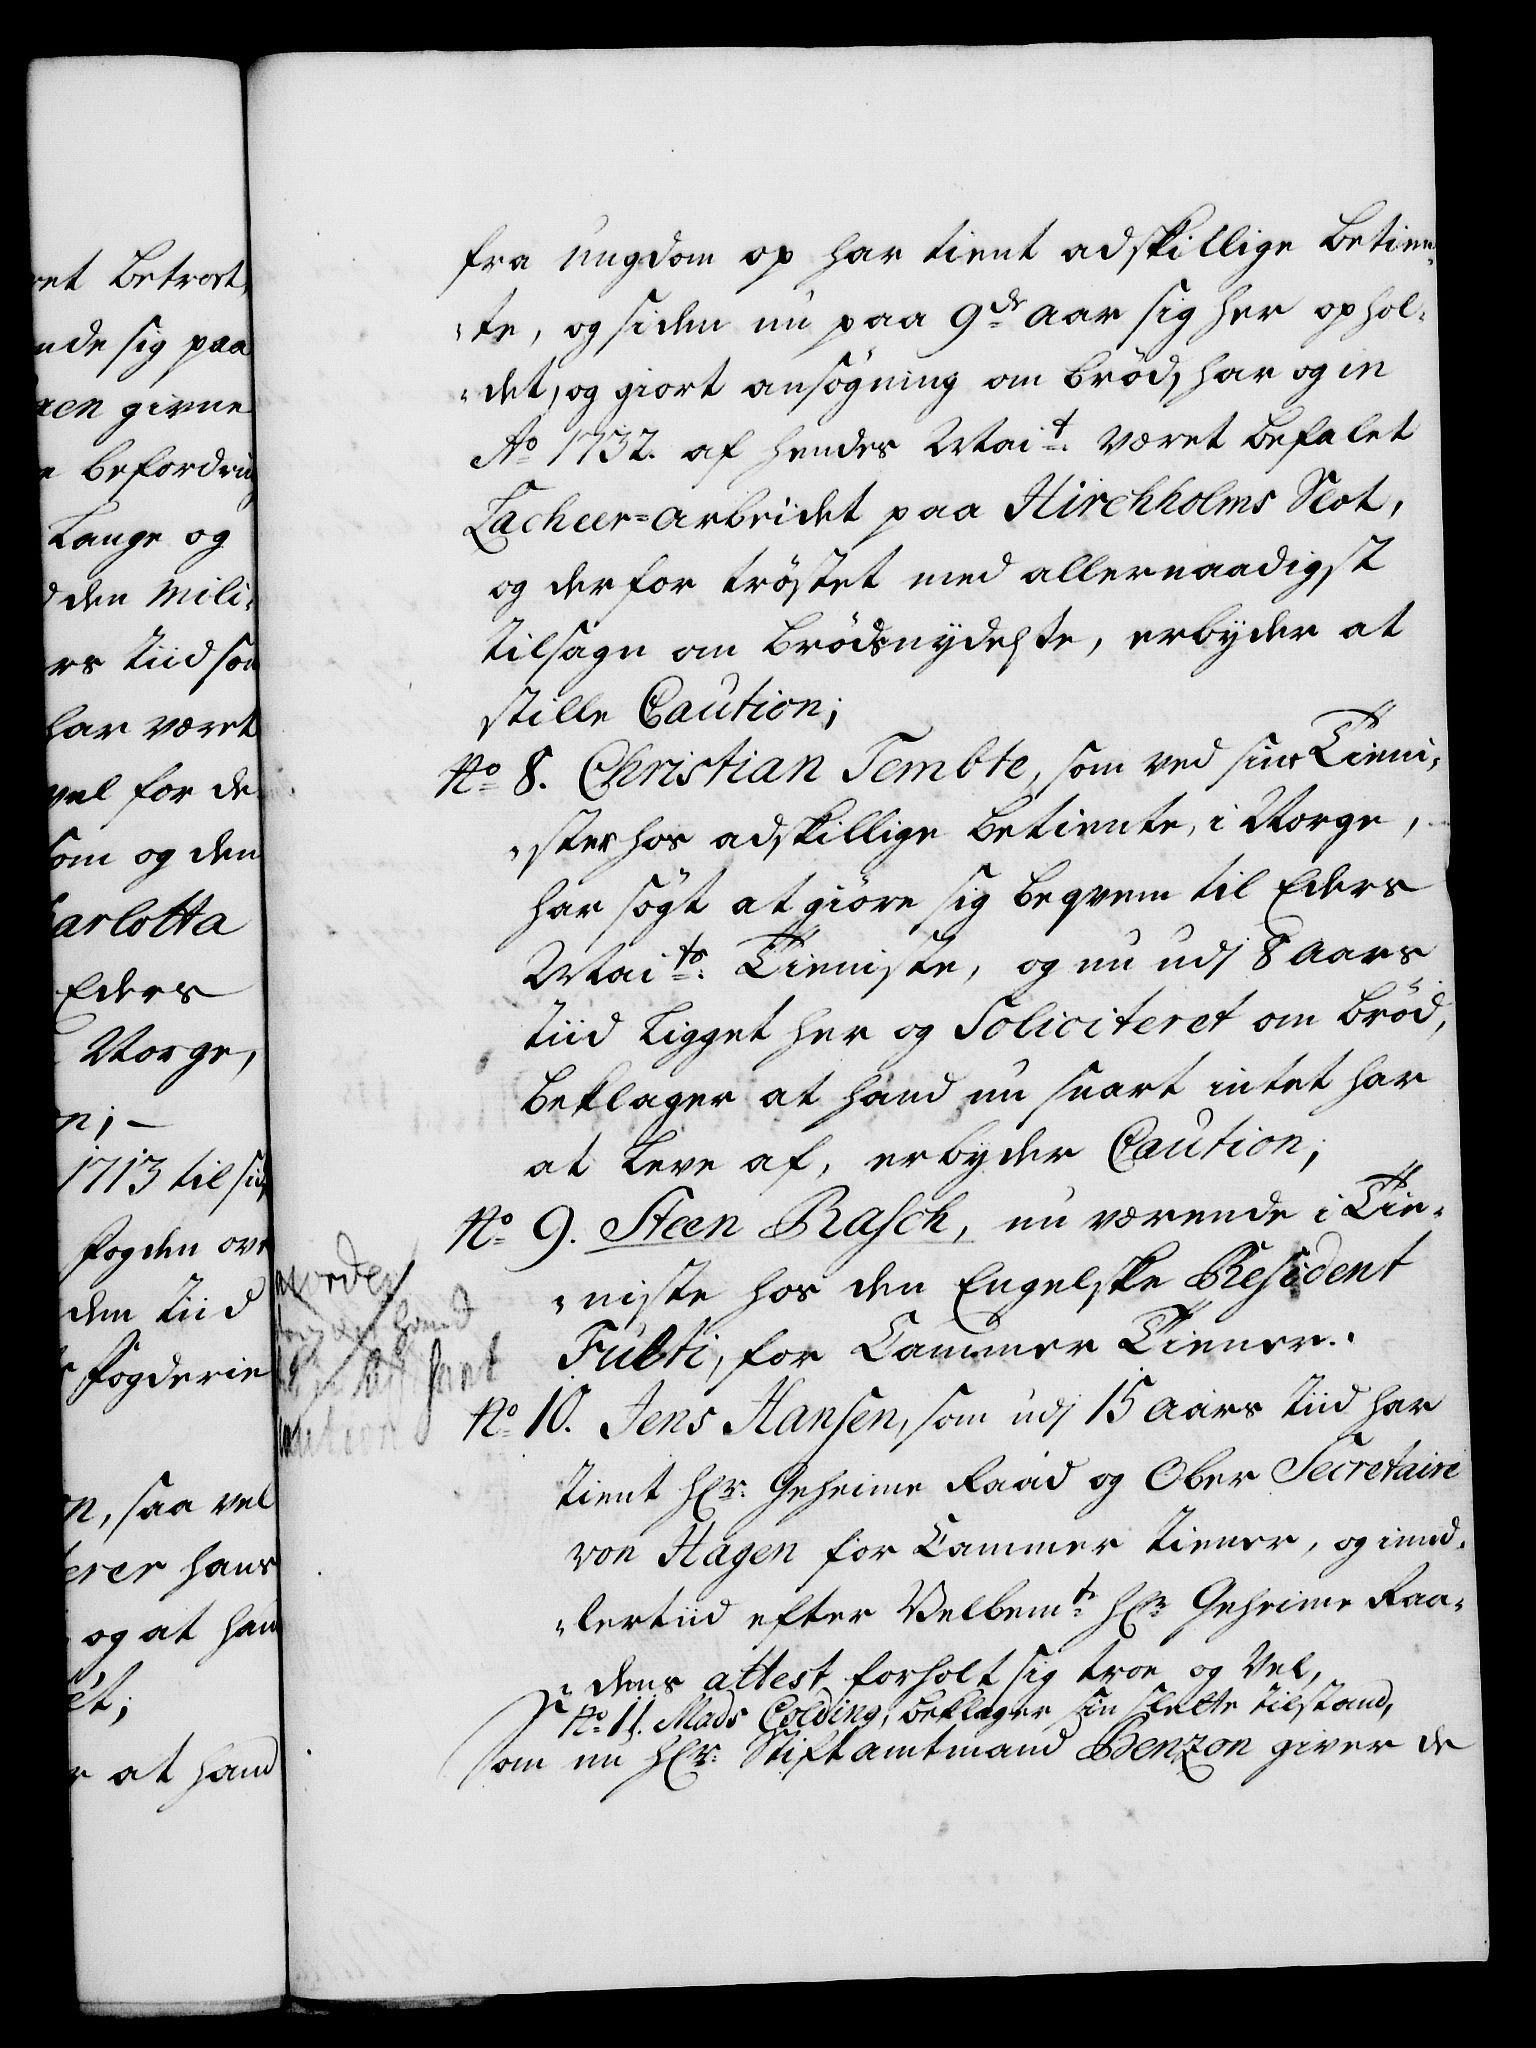 ret betroet,
nde sig paa
aen givne
e befordring
Lange og
d den Mili-
rs tiid som
har været
vel for de
som og den
harlotta
Eders
Norge,
n; -
1713 til sid
fogden ov
dem tiid
fogderie
n, saa vel
erer hans
og at han
et;
r at hand
fra Ungdom op har tient adskillige betien-
-te, og siden nu paa 9de aar sig her ophol-
-det, og giort ansøgning om brød, har og in
Ao 1732. af hendes Mait. været befalet
Lacheer=arbeidet paa Hirchholms Slot,
og derfor trøstet med allernaadigst
tilsagn om brødsnydelste, erbyder at
stille Caution;
No 8. Christian Tembte, som ved sin Tieni-
-ster hos adskillige betiente, i Norge,
har søgt at giøre sig beqvem til Eders
Maits. Tieniste, og nu udj 8 aars
tiid ligget her og Soliciteret om brød,
beklager at hand nu snart intet har
at leve af, erbyder Caution;
No 9. Steen Rasch, nu værende i Tie-
-niste hos den Engelske Resident
Fulti, for Cammer Tiener.
No 10. Jens Hansen, som udj 15 aars tiid har
tient Hr. Geheime Raad og Ober Secretaire
von Hagen for Cammer tiener, og imid-
-lertiid efter Velbemte Hr Geheime Raa-
-dens attest forholt sig troe og vel,
No 11. Mads Colding, beklager sin slette tilstand,
som nu Hr. Stiftamtmand Benzon giver de
worden
hand
Caution